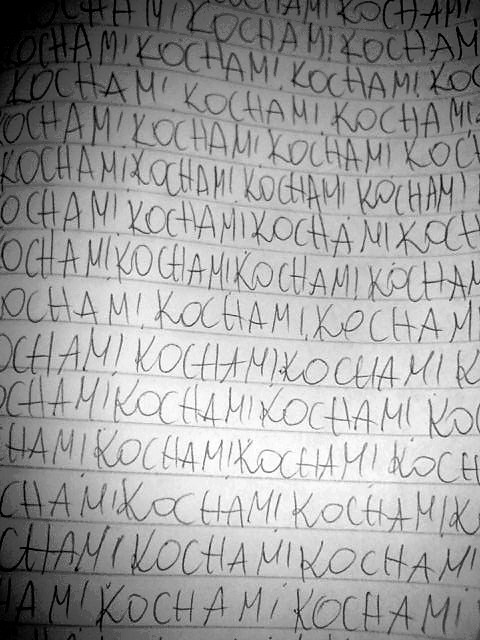 OCHAM! KOCHAM! KOCHAM!
OCHAM! KOCHAM! KOCHAM
OCHAM! KOCHAM! KOCHAM! KOC
KOCHAM! KOCHAM! KOCHAM!
KOCHAM! KOCHAM! KOCHAM! KOCH
KOCHAM! KOCHAM! KOCHAM! KOCHAM!
OCHAM! KOCHAM! KOCHAM! KOCH
OCHAM! KOCHAM! KOCHAM! KOCHAM
OCHAM! KOCHAM! KOCHAM!
OCHAM! KOCHAM! KOCHAM! K
OCHAM! KOCHAM! KOCHAM! KO
HAM! KOCHAM! KOCHAM! KOCH
CHAM! KOCHAM! KOCHAM! K
CHAM! KOCHAM! KOCHAM!
HAM! KOCHAM! KOCHAM!